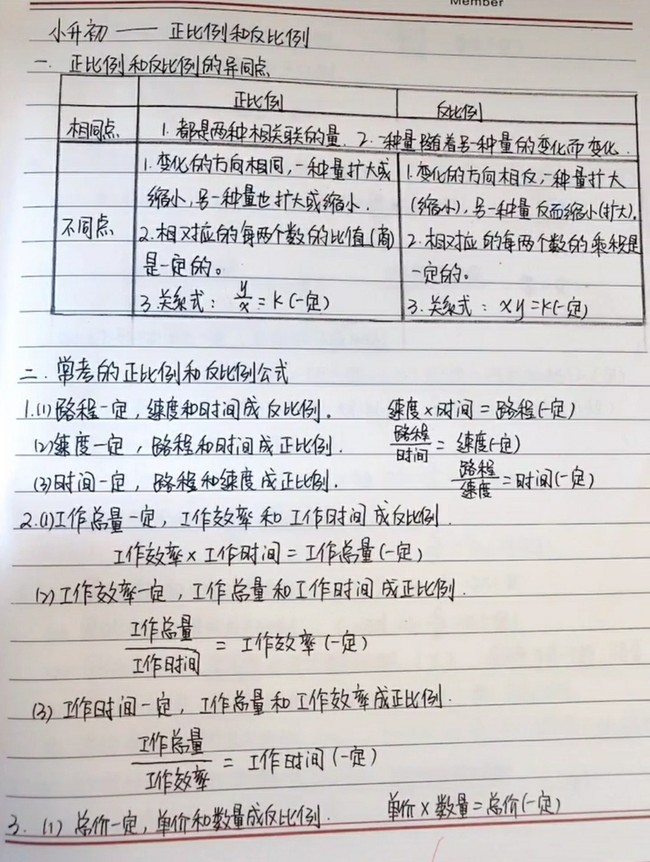 Member
小升初 —— 正比例和反比例
一. 正比例和反比例的异同点
正比例 反比例
相同点 1. 都是两种相关联的量. 2. 一种量随着另一种量的变化而变化.
不同点
1. 变化的方向相同,一种量扩大或
缩小,另一种量也扩大或缩小.
2. 相对应的每两个数的比值(商)
是一定的。
3. 关系式: y/x = k(一定)
1. 变化的方向相反,一种量扩大
(缩小),另一种量反而缩小(扩大).
2. 相对应的每两个数的乘积是
一定的。
3. 关系式: xy = k(一定)
二. 常考的正比例和反比例公式
1.(1)路程一定,速度和时间成反比例. 速度×时间=路程(一定)
(2)速度一定,路程和时间成正比例. 路程/时间 = 速度(一定)
(3)时间一定,路程和速度成正比例. 路程/速度 = 时间(一定)
2.(1)工作总量一定,工作效率和工作时间成反比例.
工作效率×工作时间=工作总量(一定)
(2)工作效率一定,工作总量和工作时间成正比例.
工作总量/工作时间 = 工作效率(一定)
(3)工作时间一定,工作总量和工作效率成正比例.
工作总量/工作效率 = 工作时间(一定)
3.(1)总价一定,单价和数量成反比例. 单价×数量=总价(一定)